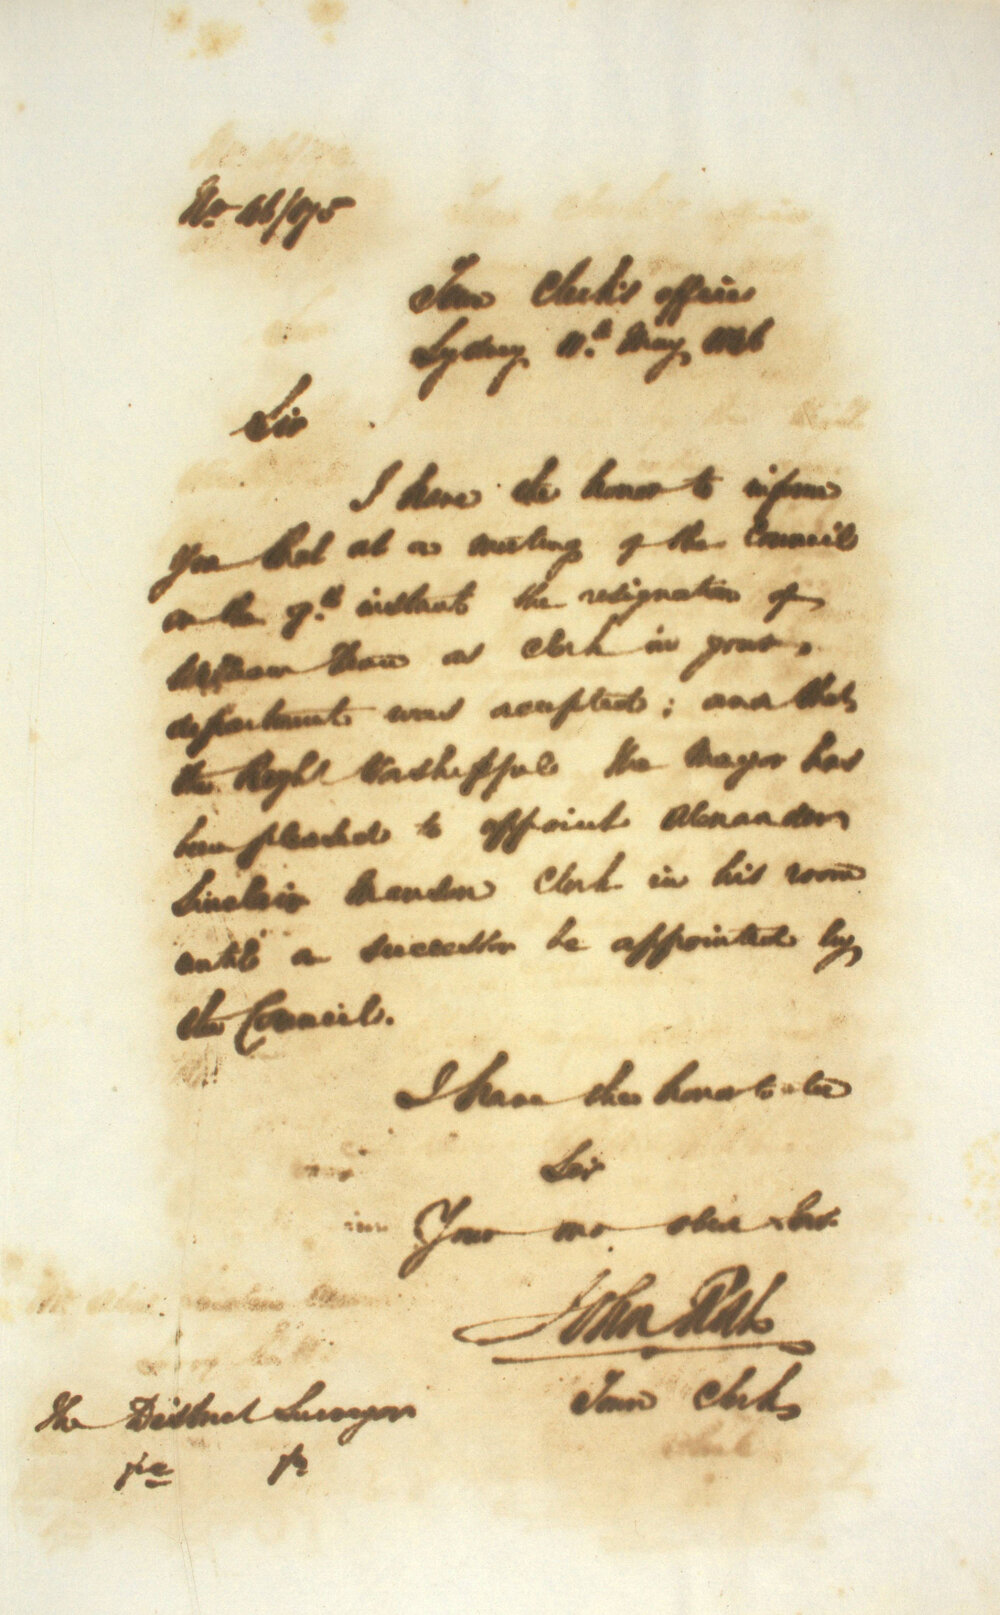 No 46/195
Town Clerk's Office
Sydney 11.th May, 1846
Sir
I have the honor to inform
you that at a meeting of the Council
on the 7.th instant the resignation of
William as Clerk in your
department was accepted; and that
the Right Worshipful the Mayor has
been pleased to appoint Alexander
Sinclair Clerk in his room
until a successor be appointed by
the Council.
I have the honor to be
Sir
Your mo obed Ser.
John Rae
Town Clerk
The District Surveyor